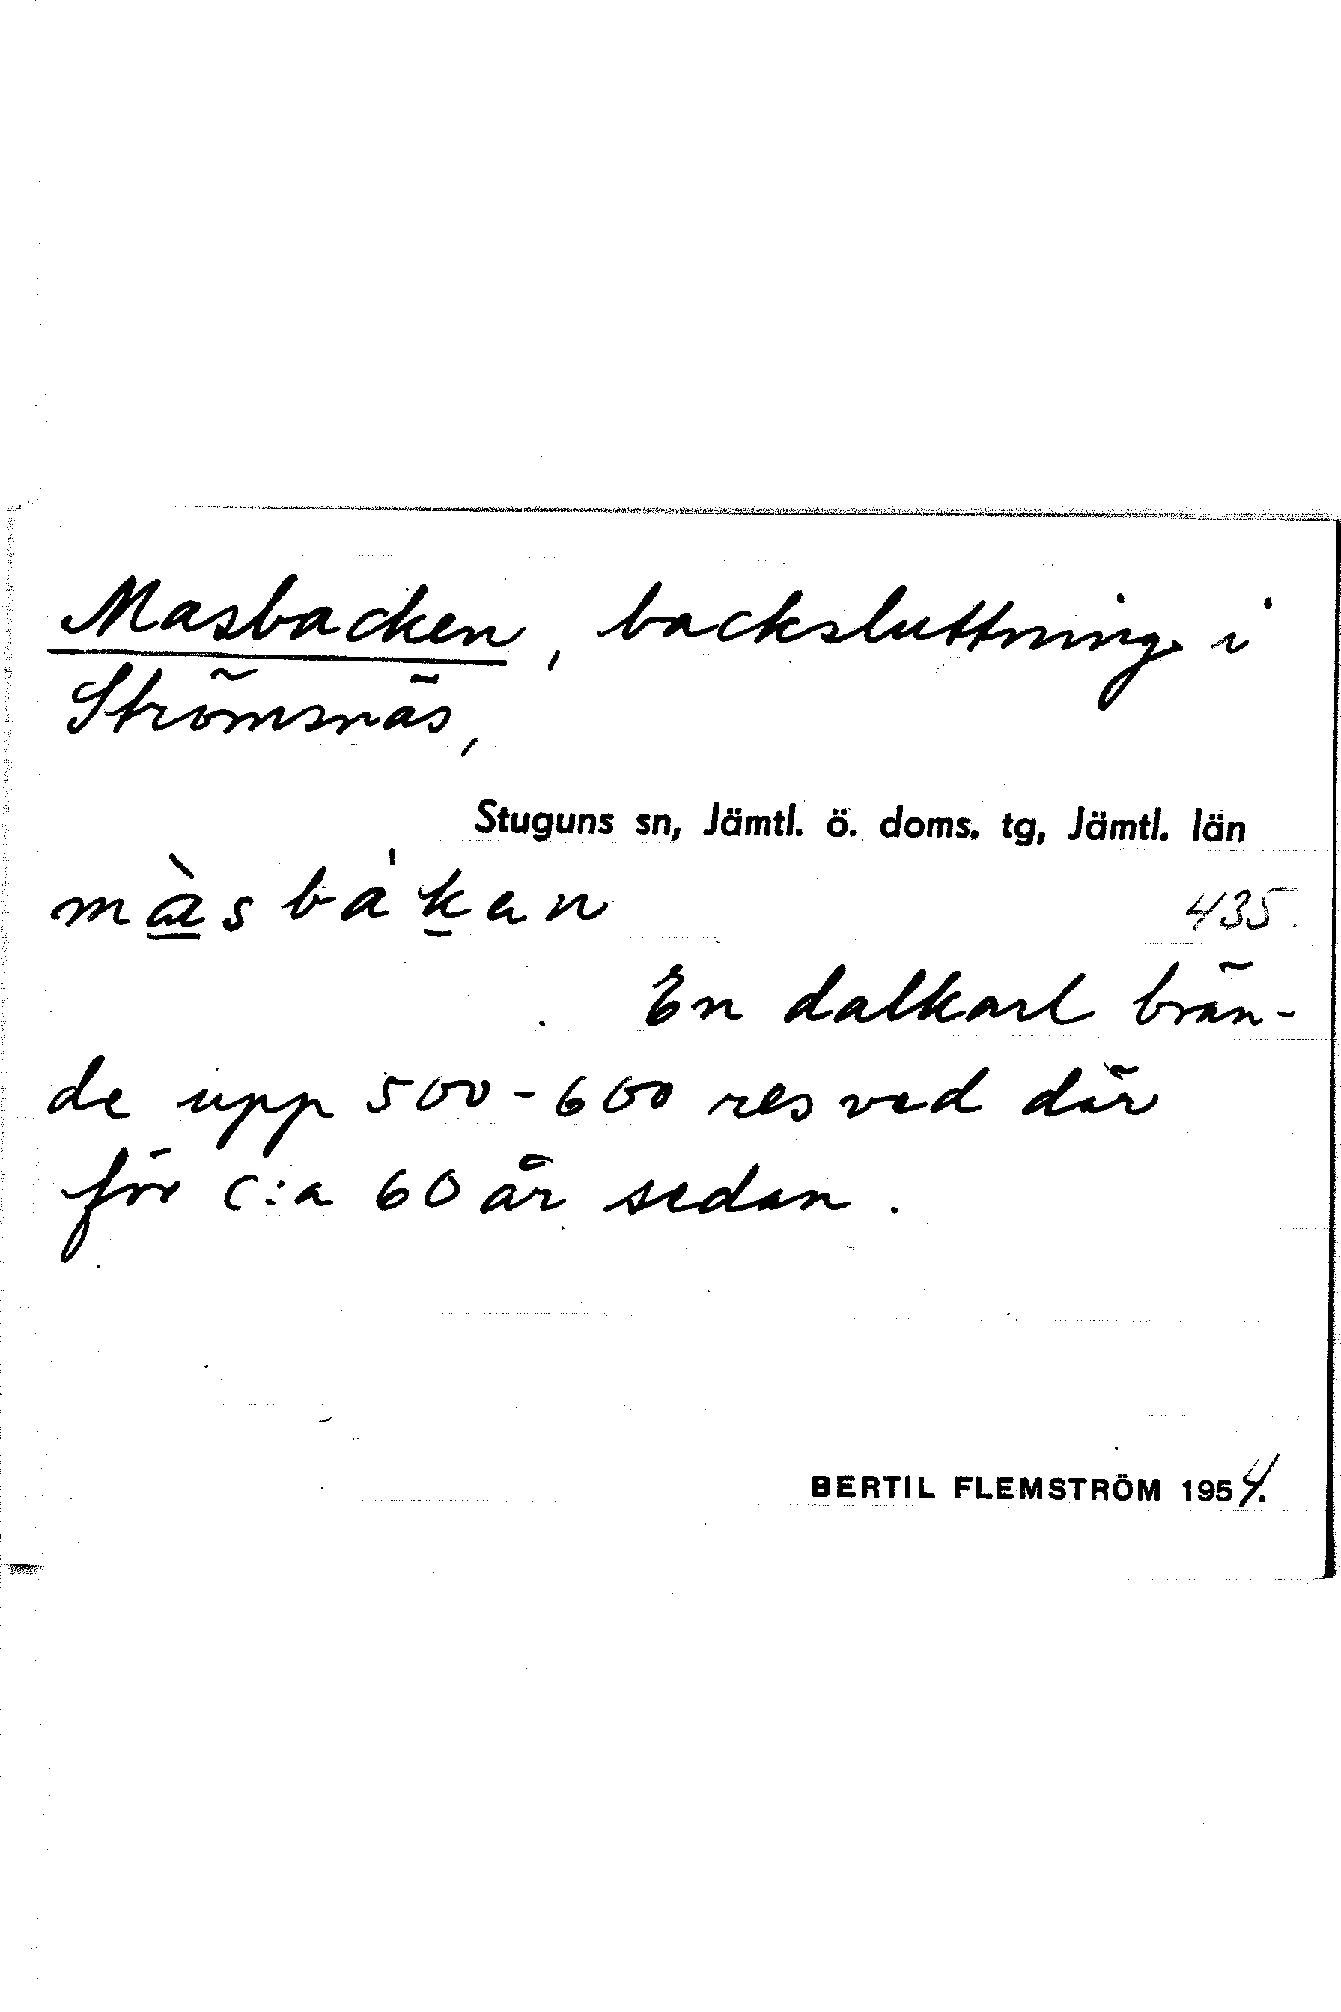 Masbacken, backsluttning i
Strömsnäs,
Stuguns sn, Jämtl. ö. doms. tg, Jämtl. län
màsbákan
435.
En dalkarl brän-
de upp 500-600 res ved där
för c:a 60 år sedan.
BERTIL FLEMSTRÖM 1954.